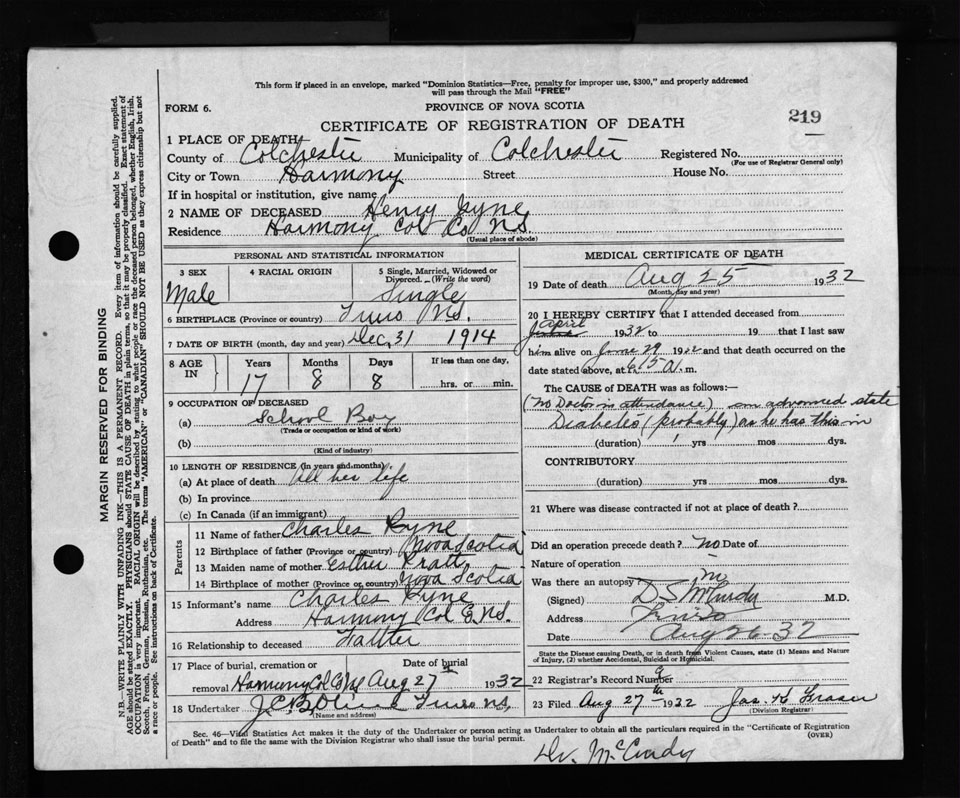 This form if placed in an envelope, marked "Dominion Statistics—Free, penalty for improper use, $300," and properly addressed
will pass through the Mail "FREE"
FORM 6.
PROVINCE OF NOVA SCOTIA
219
CERTIFICATE OF REGISTRATION OF DEATH
1 PLACE OF DEATH
County of Colchester Municipality of Colchester Registered No.
(For use of Registrar General only)
City or Town Harmony Street House No.
If in hospital or institution, give name
2 NAME OF DECEASED Henry
Residence Harmony Col Co NS.
(Usual place of abode)
PERSONAL AND STATISTICAL INFORMATION
3 SEX
Male
4 RACIAL ORIGIN
5 Single, Married, Widowed or
Divorced. (Write the word)
Single
6 BIRTHPLACE (Province or country) Truro NS.
7 DATE OF BIRTH (month, day and year) Dec, 31 1914
8 AGE IN
Years Months Days If less than one day,
17 8 8 hrs. or min.
9 OCCUPATION OF DECEASED
(a) School Boy
(Trade or occupation or kind of work)
(b)
(Kind of industry)
10 LENGTH OF RESIDENCE (in years and months)
(a) At place of death All her life
(b) In province
(c) In Canada (if an immigrant)
Parents
11 Name of father Charles
12 Birthplace of father (Province or country) Nova Scotia
13 Maiden name of mother Esther Pratt
14 Birthplace of mother (Province or country) Nova Scotia
15 Informant's name Charles
Address Harmony Col Co NS.
16 Relationship to deceased Father
17 Place of burial, cremation or Date of burial
removal Harmony Col Co NS Aug 27 1932
18 Undertaker Truro NS,
(Name and address)
MEDICAL CERTIFICATE OF DEATH
19 Date of death Aug 25 1932
(Month, day and year)
20 I HEREBY CERTIFY that I attended deceased from
April
1932 to 19 that I last saw
him alive on June 29 1932 and that death occurred on the
date stated above, at 6.15 a. m.
The CAUSE OF DEATH was as follows:—
(no Doctor in attendance) an advanced state
Diabetes (probably) as he has this in
(duration) 1 yrs mos dys.
CONTRIBUTORY
(duration) yrs mos dys.
21 Where was disease contracted if not at place of death?
Did an operation precede death? no Date of
Nature of operation
Was there an autopsy? no
(Signed) D.S. McCurdy M.D.
Address Truro
Date Aug 26-32
State the Disease causing Death, or in death from Violent Causes, state (1) Means and Nature
of Injury, (2) whether Accidental, Suicidal or Homicidal.
22 Registrar's Record Number 9
23 Filed Aug 27th 1932 Jas. K Fraser
(Division Registrar)
Sec. 46—Vital Statistics Act makes it the duty of the Undertaker or person acting as Undertaker to obtain all the particulars required in the "Certificate of Registration
of Death" and to file the same with the Division Registrar who shall issue the burial permit.
(OVER)
Dr. McCurdy
MARGIN RESERVED FOR BINDING
N.B.—WRITE PLAINLY WITH UNFADING INK—THIS IS A PERMANENT RECORD. Every item of information should be carefully supplied.
AGE should be stated EXACTLY. PHYSICIANS should STATE CAUSE OF DEATH in plain terms, so that it may be properly classified. Exact statement of
OCCUPATION is very important. RACIAL ORIGIN will be described by stating to what people or race the deceased person belonged, whether English, Irish,
Scotch, French, German, Russian, Ruthenian, etc. The terms "AMERICAN" or "CANADIAN" SHOULD NOT BE USED as they express citizenship but not
a race or people. See instructions on back of Certificate.